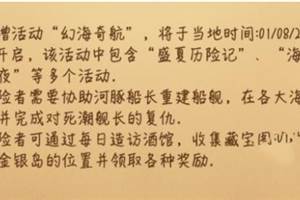 槽活动“幻海奇航”，将于当地时间:01/08/2
开启，该活动中包含“盛夏历险记”、“海
夜”等多个活动。
险者需要协助河豚船长重建船舰，在各大海
并完成对死潮舰长的复仇。
险者可通过每日造访酒馆，收集藏宝图
金银岛的位置并领取各种奖励。